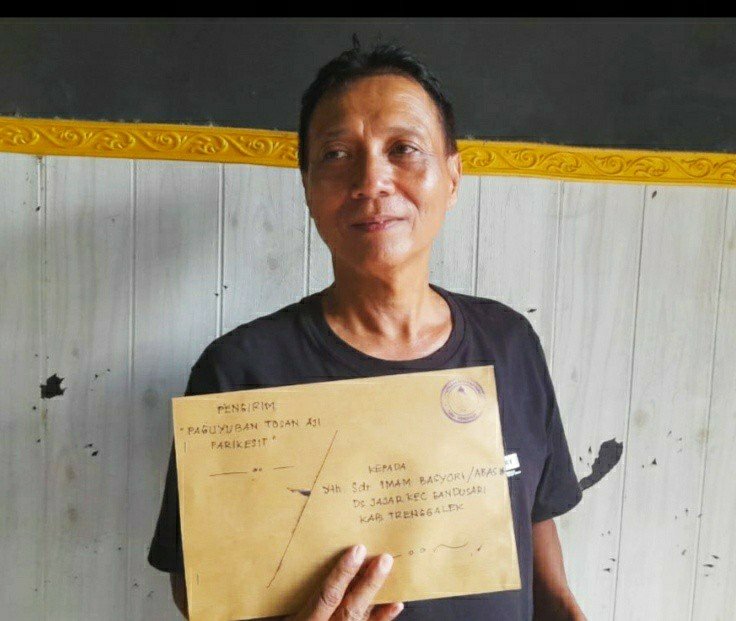 PENGIRIM
"PAGUYUBAN TOSAN AJI
PARIKESIT"
KEPADA
Yth. Sdr IMAM BASYORI/ABAS
DS. JAJAR KEC GANDUSARI
KAB. TRENGGALEK